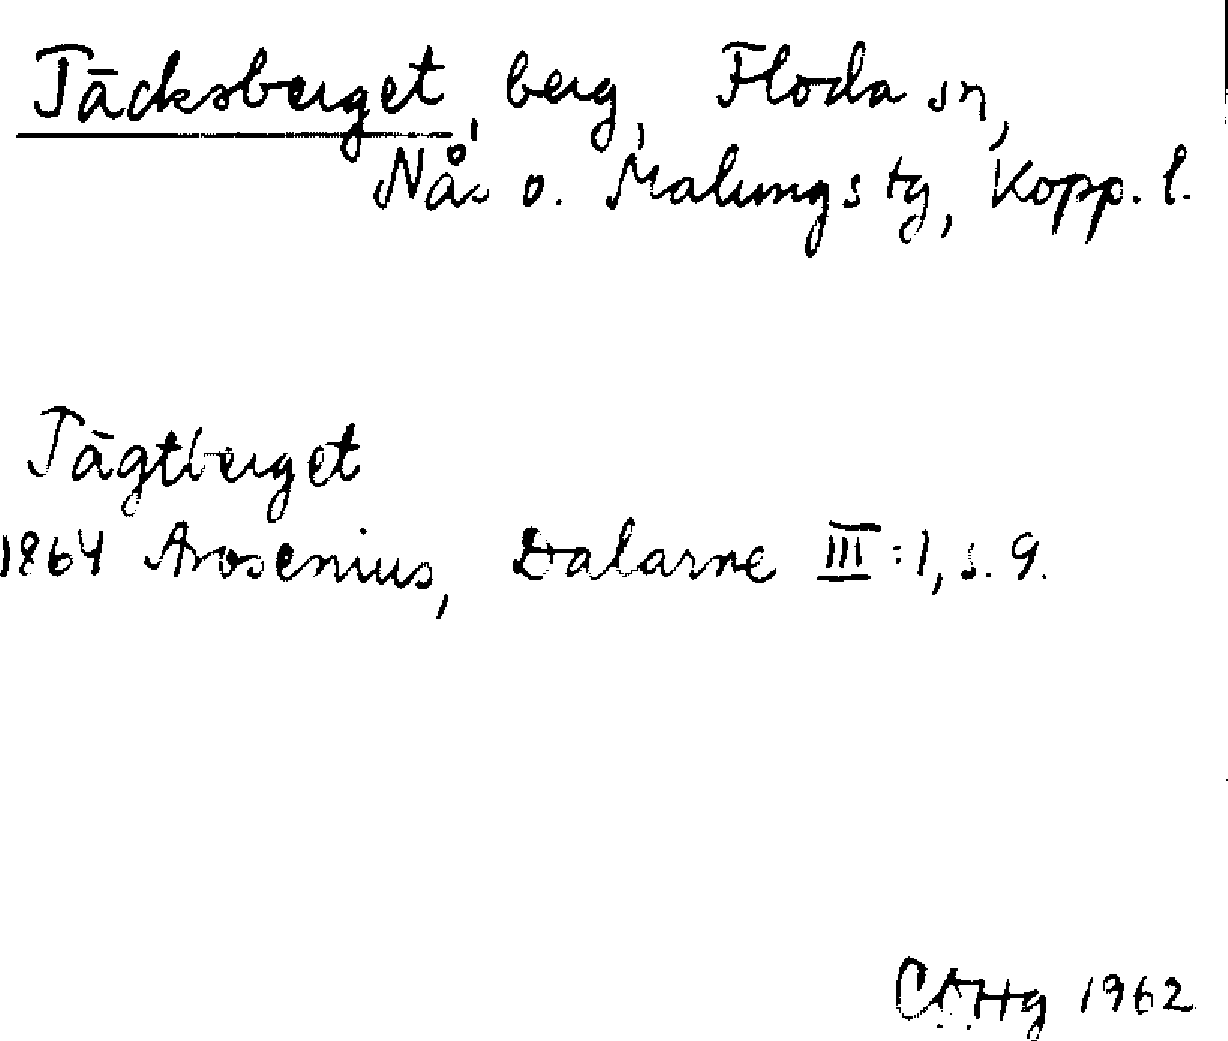 Täcksberget, berg, Floda sn,
Nås o. Malungs tg, Kopp. l.
Tägtberget
1864 Arosenius, Dalarne III:1, s. 9.
1962